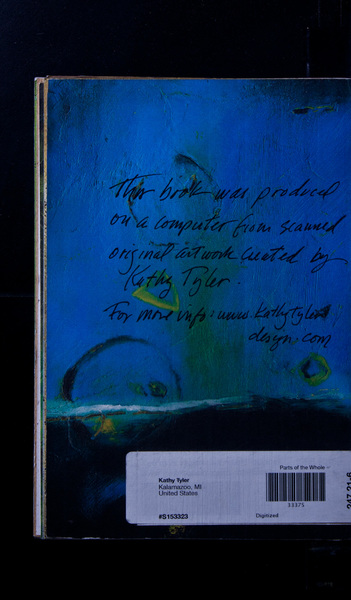 This book was produced
on a computer from scanned
original artwork created by
Kathy Tyler.
For more info: www.kathytyler
design.com
Parts of the Whole –
Kathy Tyler
Kalamazoo, MI
United States
33375
#S153323
Digitized
247.21-6